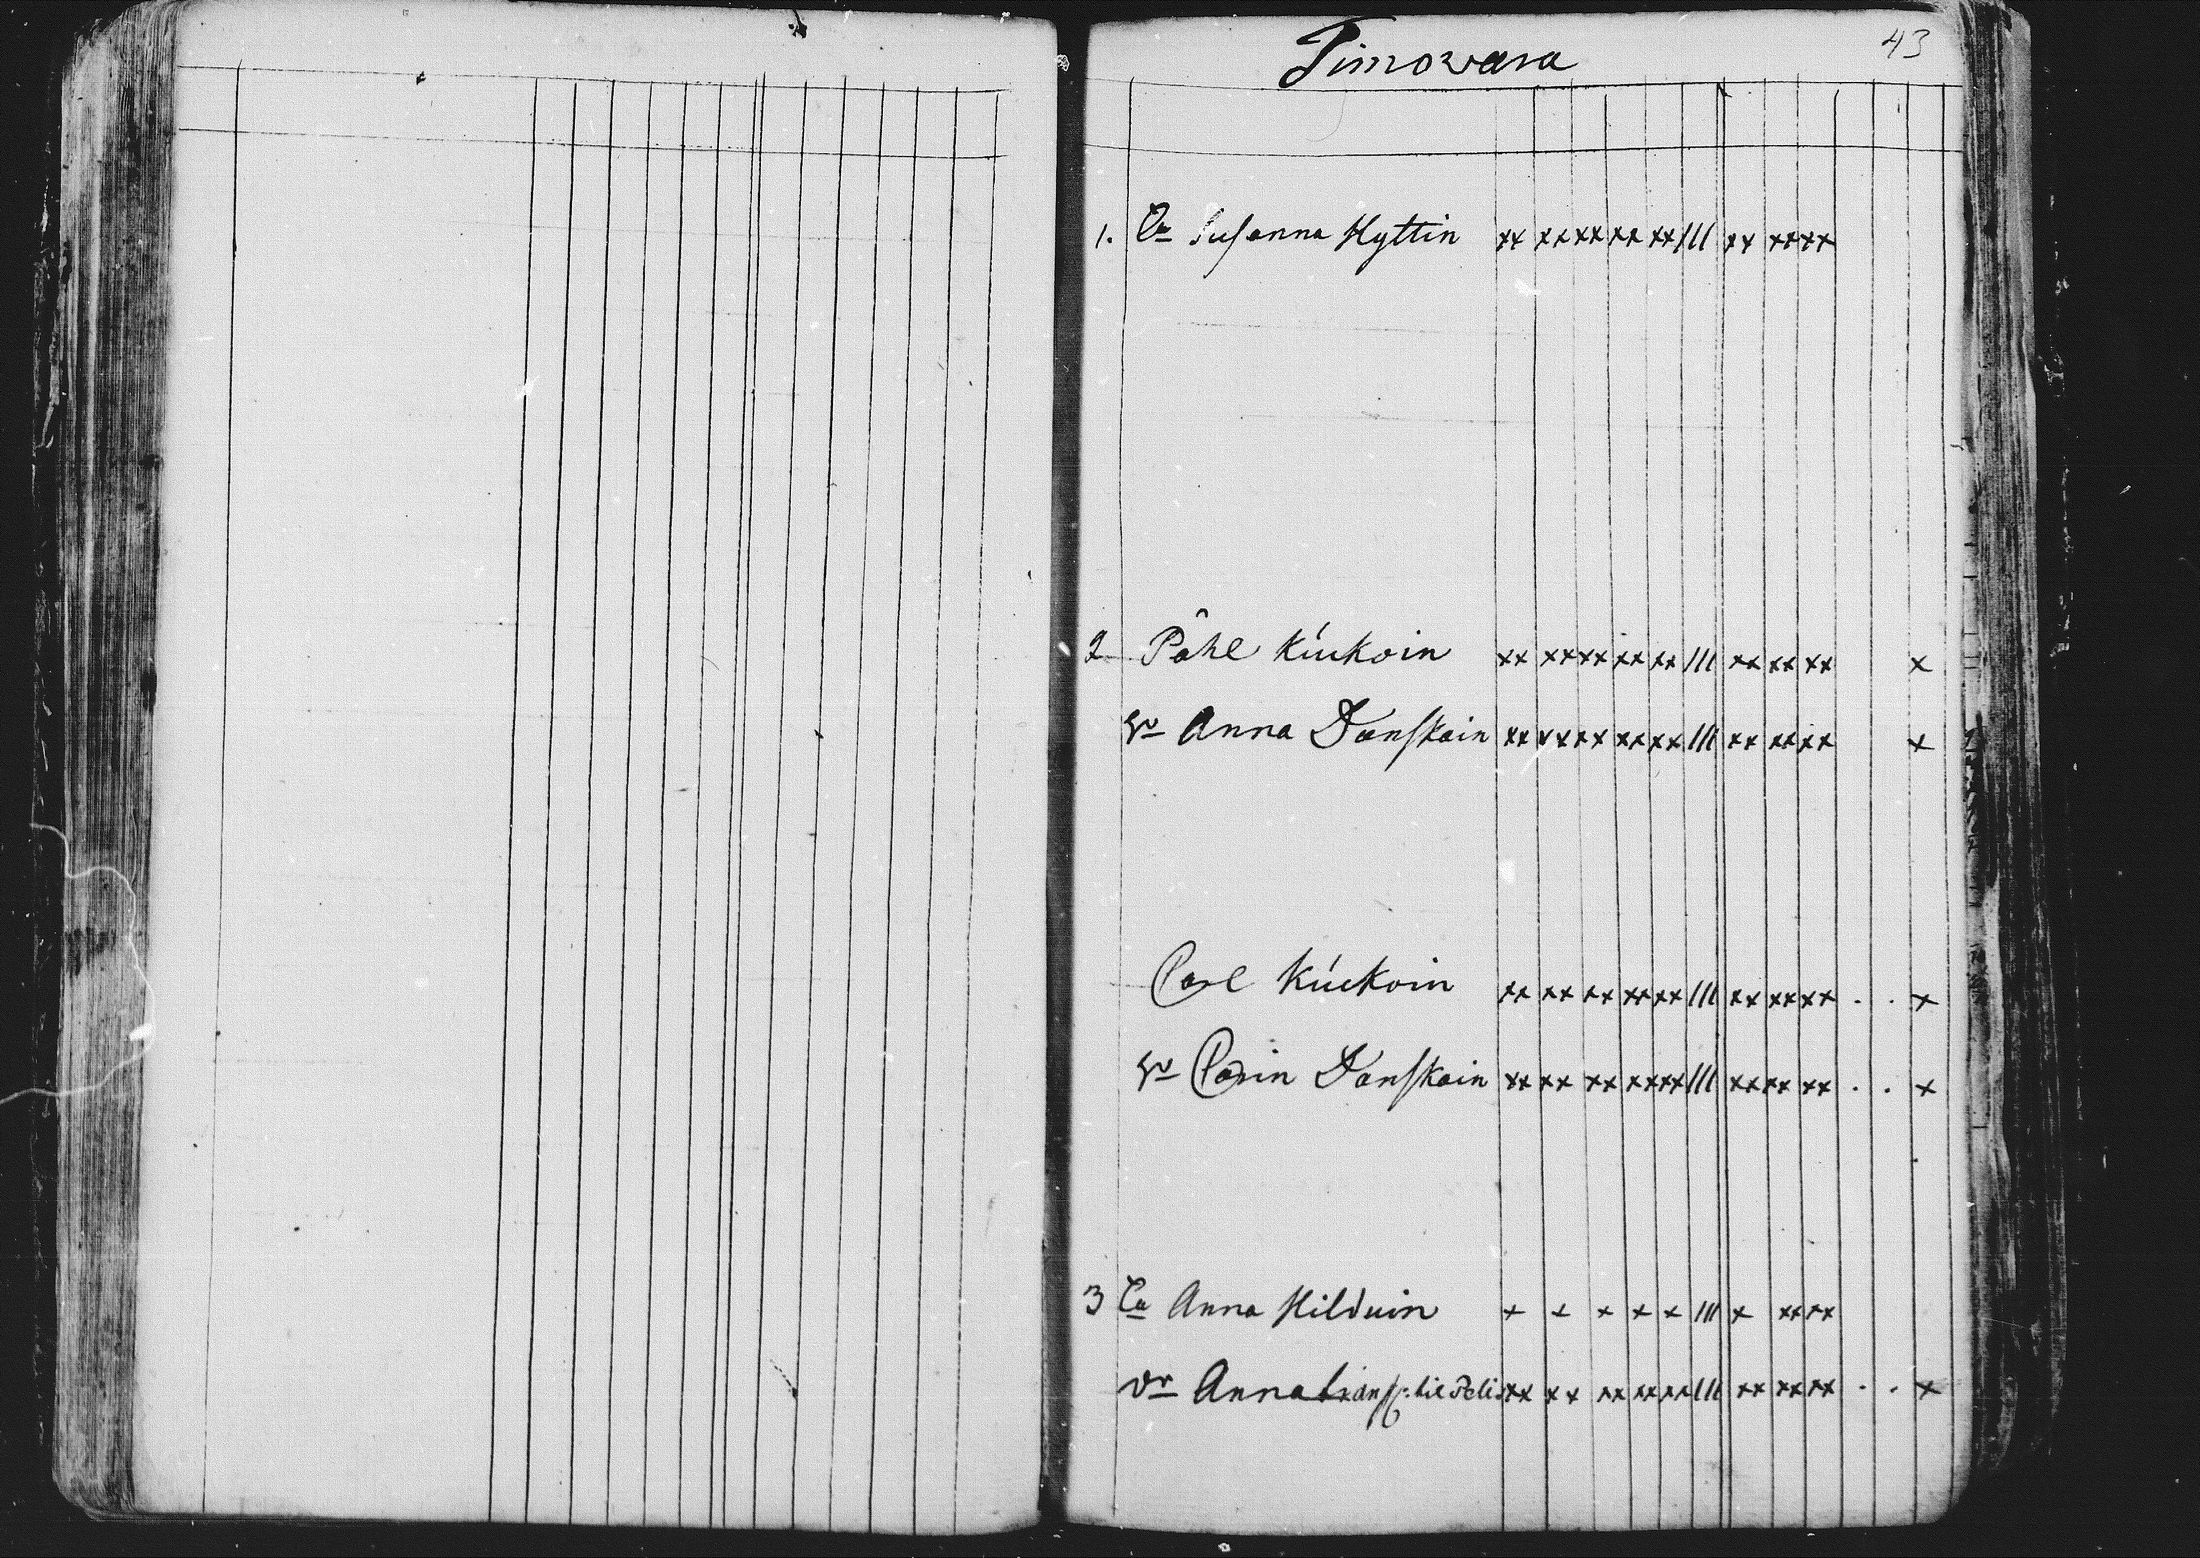 Timowara
43
1. Ea Susanna Hyttin xx xx xx xx xx /// xx xx xx
2 Påhl Kiukoin xx xx xx xx xx /// xx xx xx x
hu Anna Danskain xx xx xx xx xx /// xx xx xx x
Carl Kiukoin xx xx xx xx xx /// xx xx xx . . x
hu Carin Danskain xx xx xx xx xx /// xx xx xx . . x
3 Ea Anna Hilduin x x x x x /// x xx xx
dr Anna transp. til xx xx xx xx xx /// xx xx xx . . x